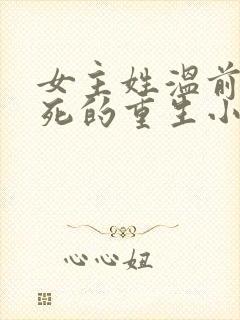 女主姓温前
死的重生小
心心妞